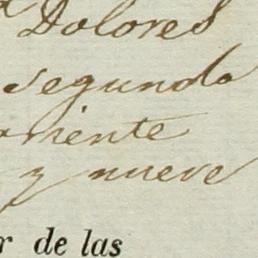 Dolores
segunda
riente
y nueve
r de las